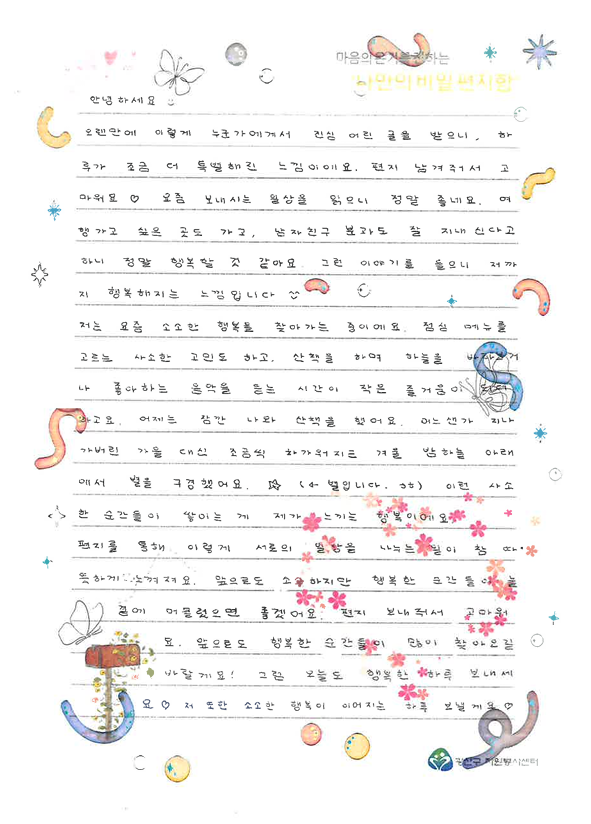 마음의 온기를 전하는
나만의 비밀 편지함
안녕하세요
오랜만에 이렇게 누군가에게서 진심 어린 글을 받으니, 하
루가 조금 더 특별해진 느낌이에요. 편지 남겨줘서 고
마워요 ♡ 요즘 보내시는 일상을 읽으니 정말 좋네요. 여
행가고 싶은 곳도 가고, 남자친구 분과도 잘 지내신다고
하니 정말 행복할 것 같아요. 그런 이야기를 들으니 저까
지 행복해지는 느낌입니다 ^^
저는 요즘 소소한 행복들 찾아가는 중이에요. 점심 메뉴를
고르는 사소한 고민도 하고, 산책을 하며 하늘를 바라보거
나 좋아하는 음악을 듣는 시간이 작은 즐거움이 되어
하고요. 어제는 잠깐 나와 산책을 했어요. 어느샌가 지나
가버린 가을 대신 조금씩 차가워지는 겨울 밤하늘 아래
에서 별을 구경했어요. ☆ (← 별입니다. ㅎㅎ) 이런 사소
한 순간들이 쌓이는 게 제가 느끼는 행복이에요
편지를 통해 이렇게 서로의 일상을 나누는 일이 참 따
뜻하게 느껴져요. 앞으로도 소소하지만 행복한 순간들이 늘
곁에 머물렀으면 좋겠어요. 편지 보내줘서 고마워
요. 앞으로도 행복한 순간들이 많이 찾아오길
바랄게요! 그럼 오늘도 행복한 하루 보내세
요 ♡ 저 또한 소소한 행복이 이어지는 하루 보낼게요 ♡
광산구 자원봉사센터